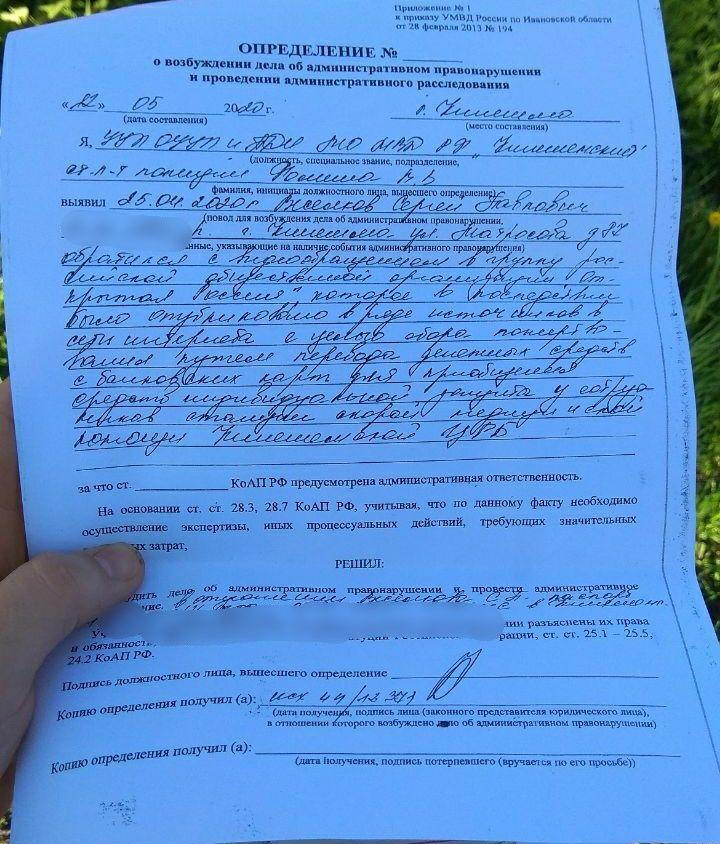 Приложение № 1
к приказу УМВД России по Ивановской области
от 28 февраля 2013 № 194
ОПРЕДЕЛЕНИЕ №
о возбуждении дела об административном правонарушении
и проведении административного расследования
«22» 05 2020 г. г. Кинешма
(дата составления) (место составления)
Я, УУП ОУУП и ПДН МО МВД РФ „Кинешемский"
(должность, специальное звание, подразделение,
ст. л-т полиции
фамилия, инициалы должностного лица, вынесшего определение)
выявил 25.04.2020г Сергей Павлович
(повод для возбуждения дела об административном правонарушении,
г. Кинешма ул. Матросова д
нные, указывающие на наличие события административного правонарушения)
обратился с в группу рос-
сийской общественной организации „От-
крытая Россия", которое в последствии
было опубликовано в ряде источников в
сети интернета с целью сбора пожертво-
вания путем перевода денежных средств
с банковских карт для приобщения
средств индивидуальной защиты у сотруд
ников станции скорой медицинской
помощи Кинешемской ЦРБ
за что ст. КоАП РФ предусмотрена административная ответственность.
На основании ст. ст. 28.3, 28.7 КоАП РФ, учитывая, что по данному факту необходимо
осуществление экспертизы, иных процессуальных действий, требующих значительных
ых затрат,
РЕШИЛ:
дить дело об административном правонарушении и провести административное
ние. в отношении
нии разъяснены их права
и обязанност рации, ст. ст. 25.1 – 25.5,
24.2 КоАП РФ.
Подпись должностного лица, вынесшего определение
Копию определения получил (а): исх 44/12
(дата получения, подпись лица (законного представителя юридического лица),
в отношении которого возбуждено дело об административном правонарушении)
Копию определения получил (а):
(дата получения, подпись потерпевшего (вручается по его просьбе))